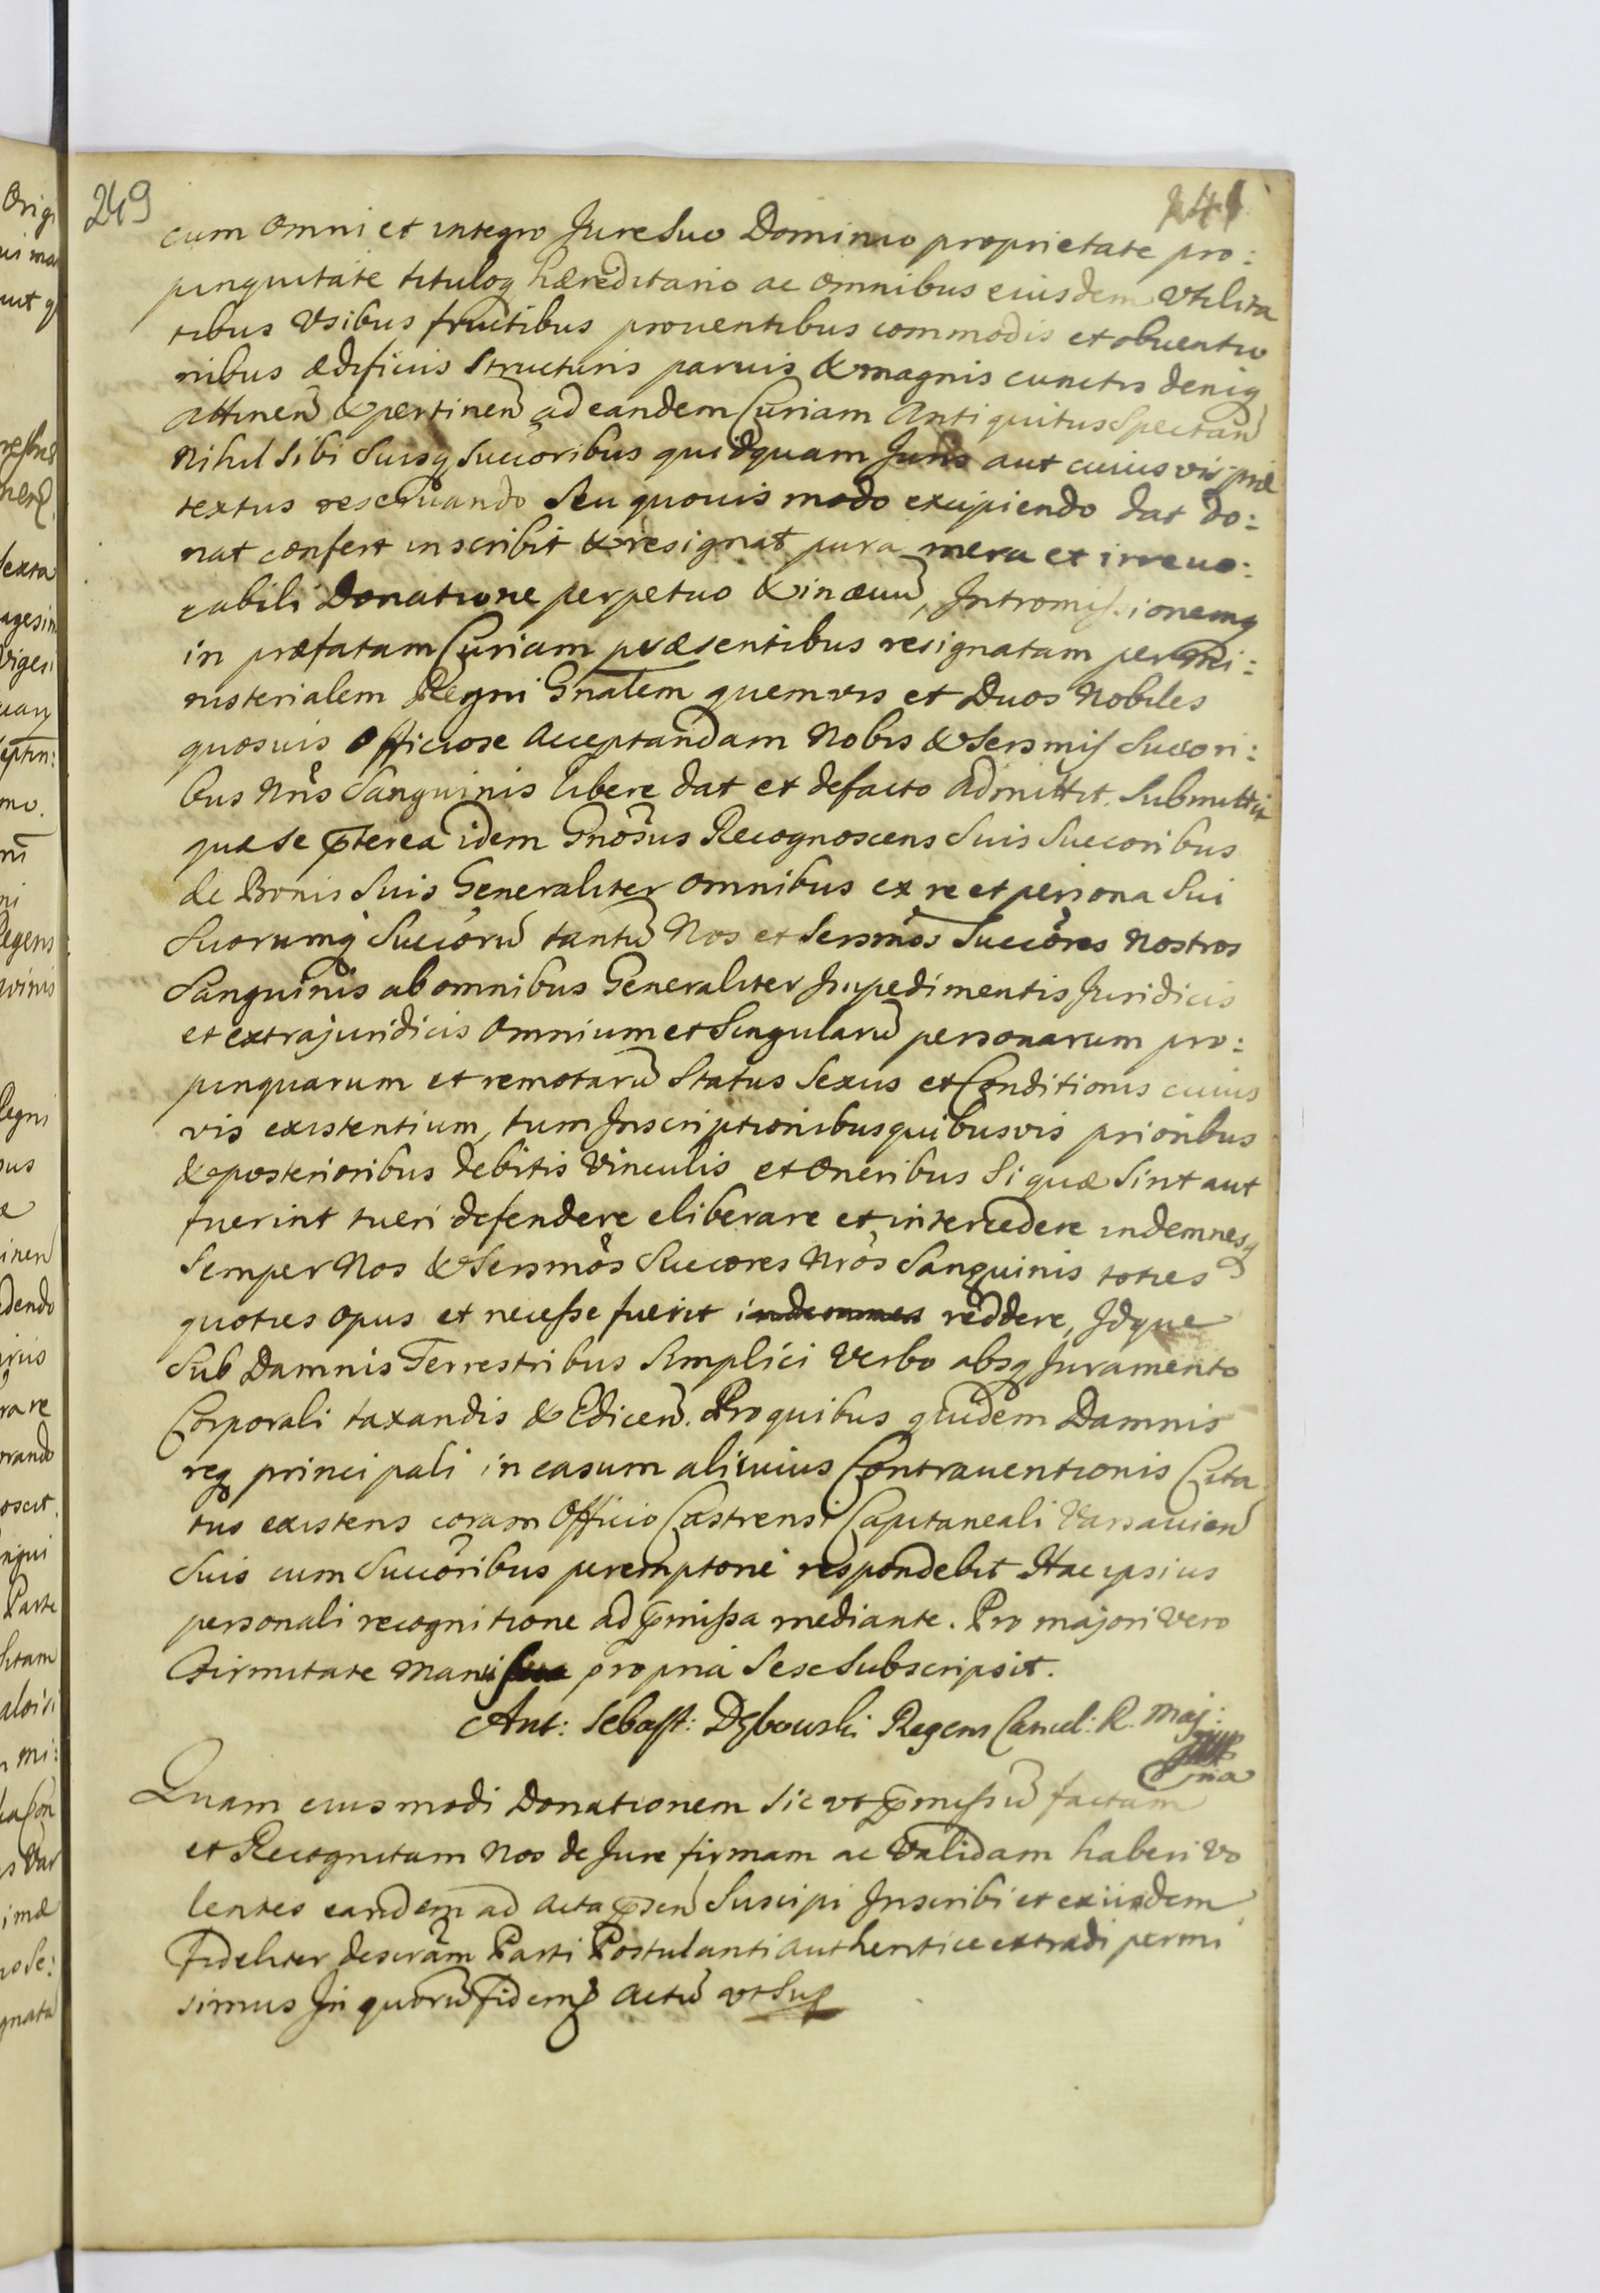 249
241
cum omni et integro Jure Suo Dominio proprietate pro:
pinquitate tituloq hæreditario ac omnibus eiusdem Vtilita
tibus Vsibus fructibus prouentibus commodis et obuentio
nibus ædificiis Structuris paruis & magnis cunctis deniq
attinen̄ & pertinen̄ ad eandem Curiam Antiquitus Spectan̄
Nihil Sibi Suisq Succoribus quidquam Juris aut cuiusvis præ
textus reseruando Seu quouis modo excipiendo dat do:
nat confert inscribit & resignat pura mera et irreuo:
cabili Donatione perpetuo & in æuū, Intromissionemq
in præfatam Curiam præsentibus resignatam per Mi:
nisterialem Regni Gnalem quemvis et Duos Nobiles
quosuis officiose Acceptandam Nobis & Sersmis Succori:
bus Nris Sanguinis libere dat et defacto admittit. Submittit
quæ se p̄terea idem Gnosus Recognoscens Suis Succoribus
de Bonis Suis Generaliter omnibus ex re et persona Sui
Suorumq Succorū tantū Nos et Sersmos Succores Nostros
Sanguinis ab omnibus Generaliter Impedimentis Juridicis
et extrajuridicis Omnium et Singularū personarum pro:
pinquarum et remotarū Status Sexus et Conditionis cuius
vis existentium, tum Inscriptionibus quibusvis prioribus
& posterioribus debitis Vinculis et Oneribus Si quæ Sint aut
fuerint tueri defendere eliberare et intercedere indemnesq
Semper Nos & Sersmos Succores Nros Sanguinis toties
quoties opus et necesse fuerit indemnes reddere, Idque
Sub Damnis Terrestribus Simplici Verbo absq Juramento
Corporali taxandis & Edicen̄. Pro quibus quidem Damnis
req principali in casum alicuius Contrauentionis Cita
tus existens coram Officio Castrensi Capitaneali Varsauien̄
Suis cum Succoribus peremptorie respondebit Hac ipsius
personali recognitione ad p̄missa mediante. Pro majori vero
firmitate Manu propria Sese Subscripsit.
Ant: Sebast: Dębowski Regens Cancel: R. Maj:
Quam eiusmodi Donationem Sic vt p̄missū factam
et Recognitam Nos de Jure firmam ac Validam haberi Vo
lentes eandem ad Acta p̄sen̄ Suscipi Inscribi et exiisdem
Fideliter descram Parti Postulanti authentice extradi permi
simus In quorū fidem Actū vt Sup